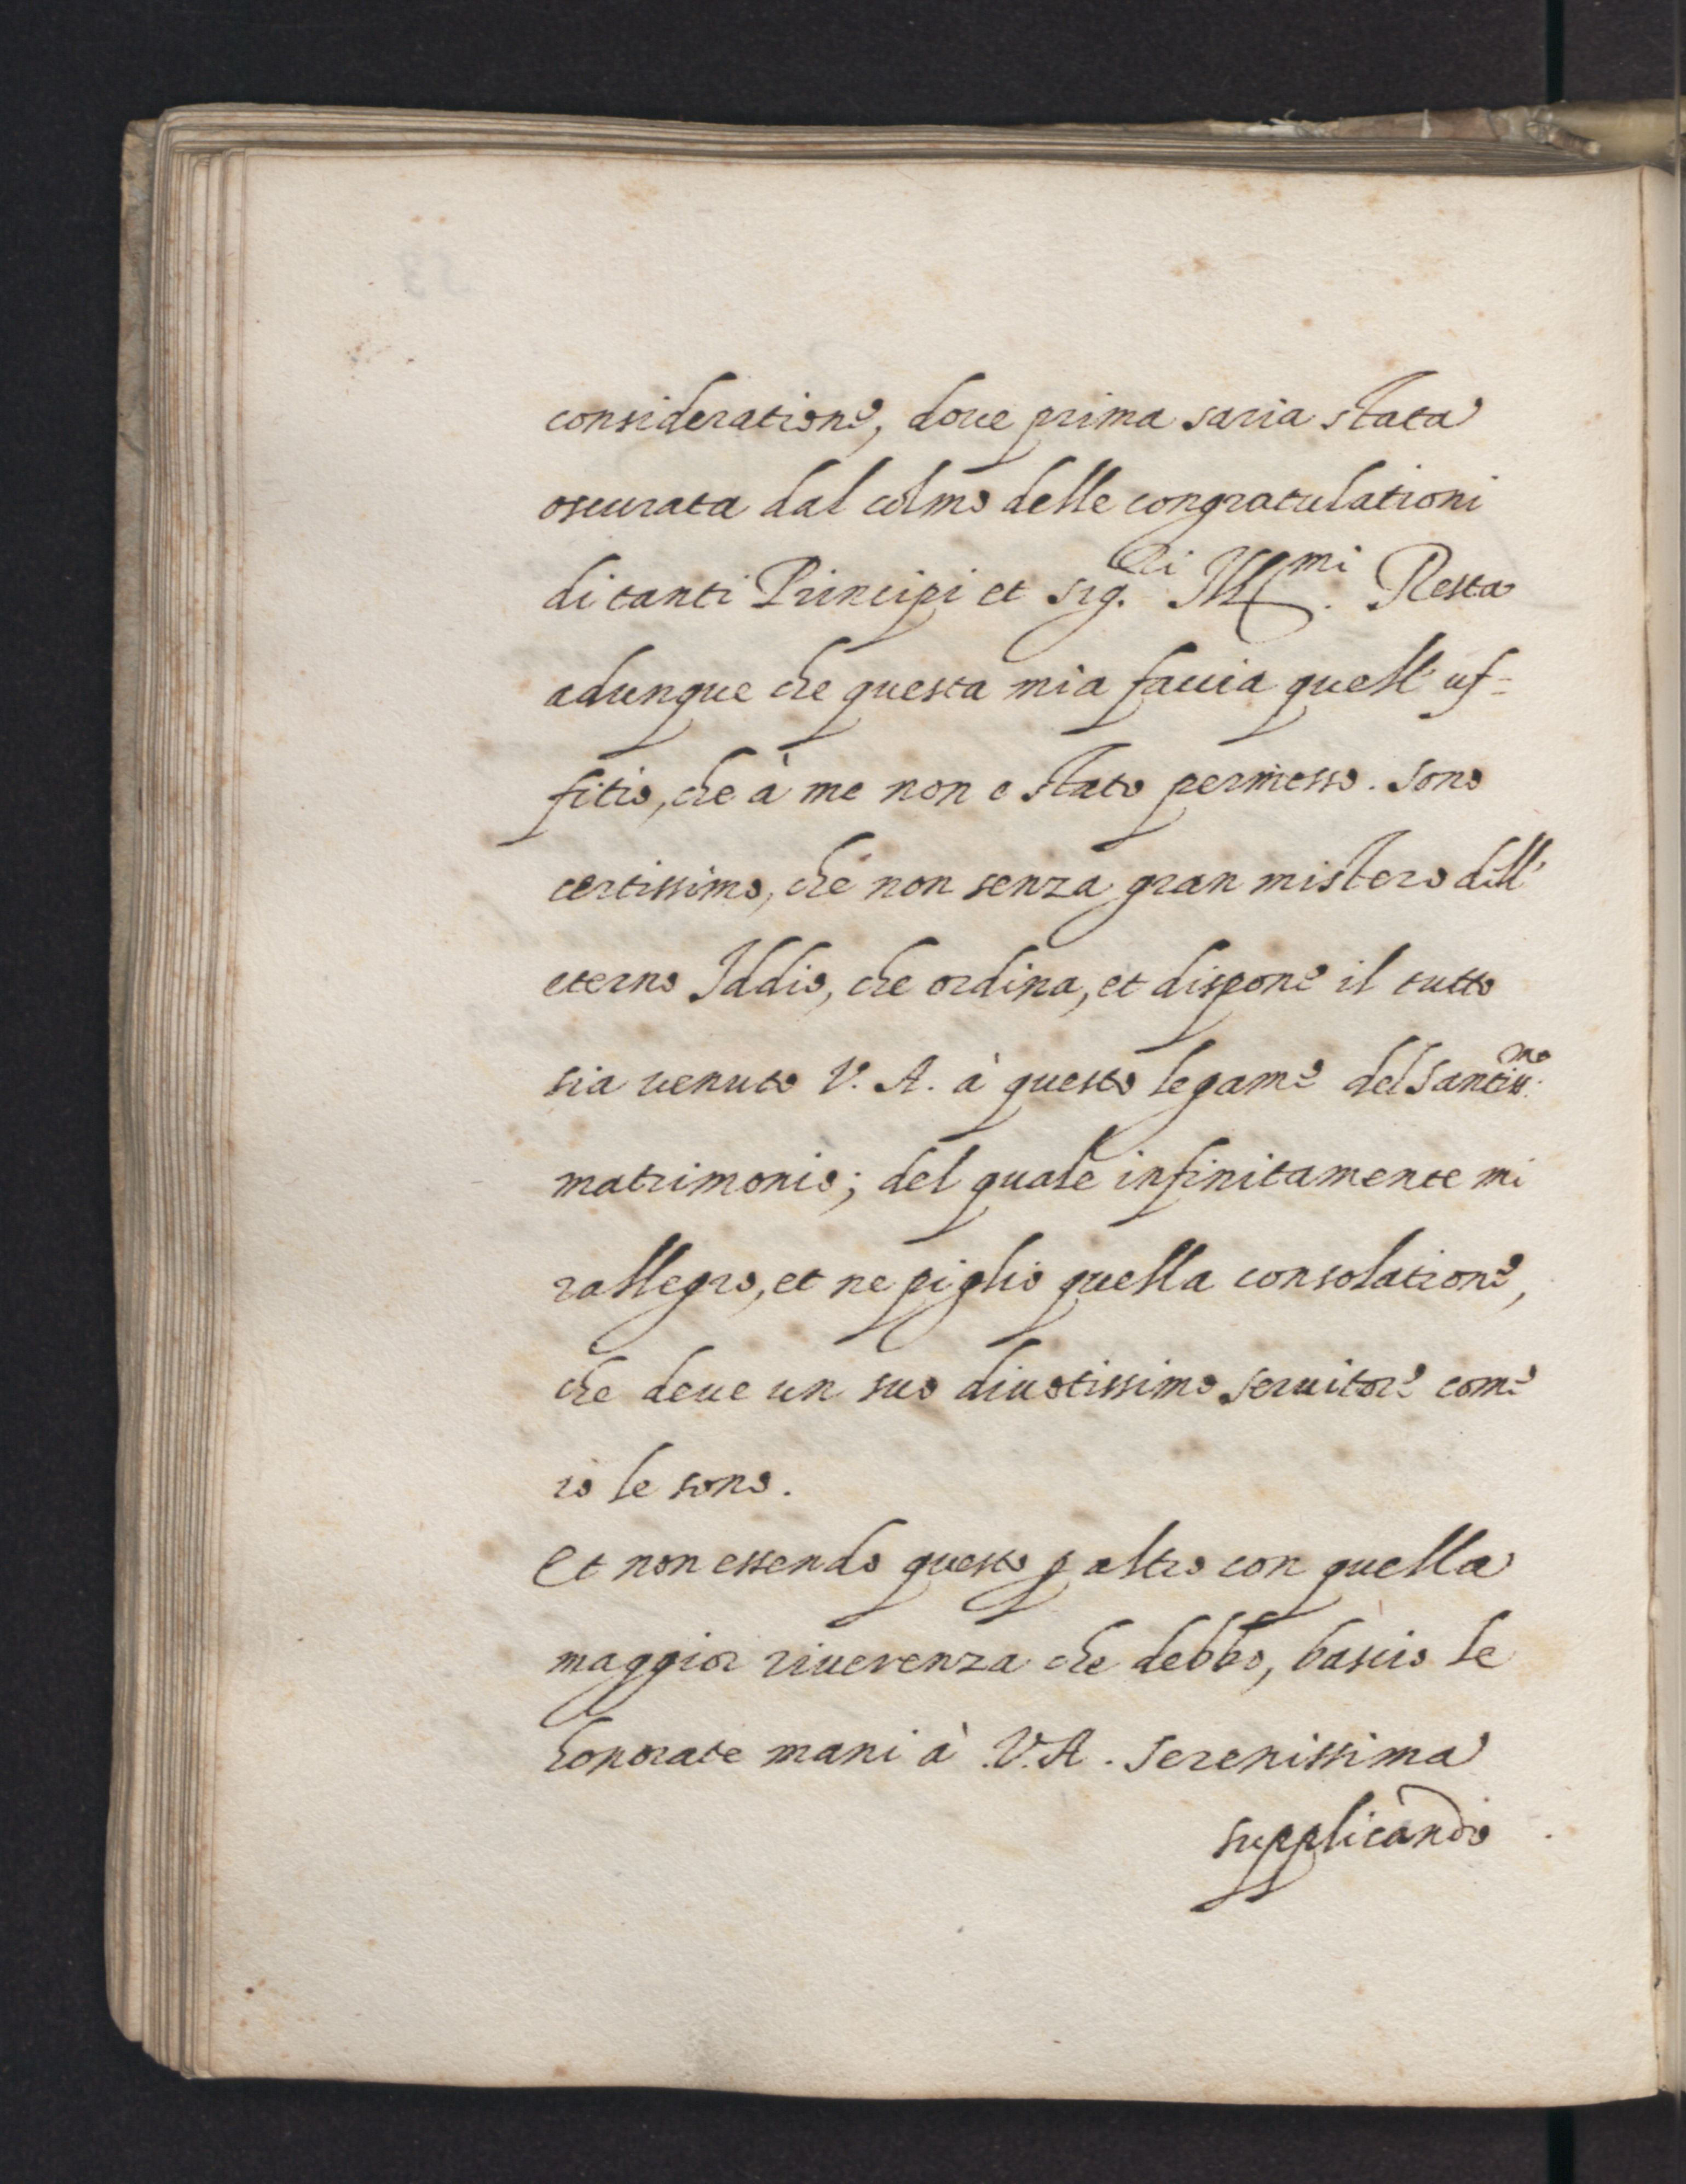 consideratione, doue prima saria stata
oscurata dal colmo delle congratulationi
di tanti Principi et Sig.ri Ill.mi. Resta
adunque che questa mia faccia quell' uf=
fitio, che à me non e stato permesso. Sono
certissimo, che non senza gran mistero dell'
eterno Iddio, che ordina, et dispone il tutto
sia uenuto V. A. à questo legame del Santiss.mo
matrimonio; del quale infinitamente mi
rallegro, et ne piglio quella consolatione,
che deue un suo diuotissimo seruitore come
io le sono.
Et non essendo questo ꝑ altro con quella
maggior riuerenza che debbo, bascio le
honorate mani à V. A. Serenissima
supplicando